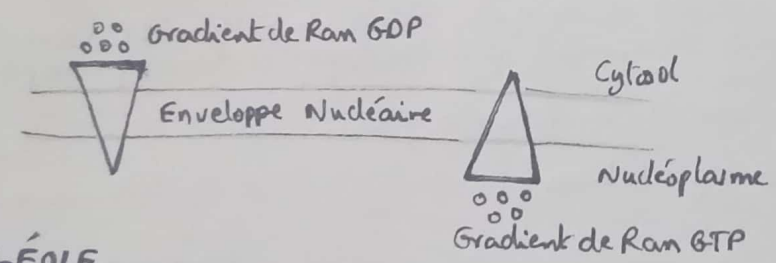 Gradient de Ran GDP
Cytosol
Enveloppe Nucléaire
Nucléoplasme
Gradient de Ran GTP